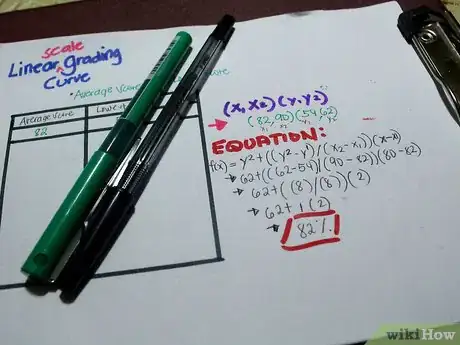 scale
Linear grading
Curve
• Average Score
Average Score
82
(x, x2) (y, y2)
(82,90) (54,62)
EQUATION:
f(x) = y2 + ((y2-y) / (x2-x1)) (x-x1)
→ 62+((62-54)/(90-82))(80-82)
→ 62+ ((8)/(8))(2)
→ 62+ 1 (2)
→ 82%
wikiHow